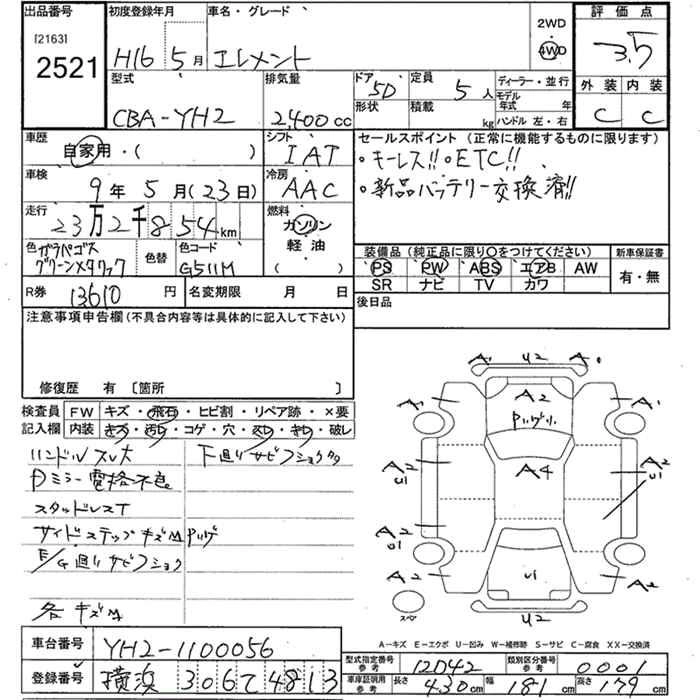 出品番号 初度登録年月 車名・グレード 2WD 評価点
[2163] 4WD 3.5
2521 H16 5月 エレメント
外装 内装
型式 排気量 ドア 5D 定員 5人 ディーラー・並行
モデル年式 年
CBA-YH2 2,400cc 形状 積載 kg ハンドル 左・右 C C
車歴 シフト セールスポイント(正常に機能するものに限ります)
自家用・( ) IAT ・キーレス!!・ETC!!
車検 冷房 ・新品バッテリー交換済!!
9年 5月(23日) AAC
走行 燃料
23万2千854km ガソリン
軽油
( )
色 ガラパゴス 色替 色コード 装備品(純正品に限り○をつけてください) 新車保証書
グリーンメタリック G511M PS PW ABS エアB AW 有・無
R券 13610円 名変期限 月 日 SR ナビ TV カワ
後日品
注意事項申告欄(不具合内容等は具体的に記入して下さい)
修復歴 有〔箇所 〕
検査員 FW キズ・飛石・ヒビ割・リペア跡・×要
記入欄 内装 キズ・汚レ・コゲ・穴・スレ・キレ・破レ
ハンドルスレ大 下廻りサビフショク
Pミラー電格不良
スタッドレスT
サイドステップキズ
E/G廻りサビフショク
各キズ
A' U2 A
A' A2 A'
A2 A4 A2
U1 U1
A2 A2
U1
A2 U1 A2
スペ U2
A-キズ E-エクボ U-凹み W-補修跡 S-サビ C-腐食 XX-交換済
車台番号 YH2-1100056
型式指定番号 参考 12042 類別区分番号 参考 0001
登録番号 横浜 306 て 4813
車庫証明用 参考 長さ 430cm 幅 181cm 高さ 179cm